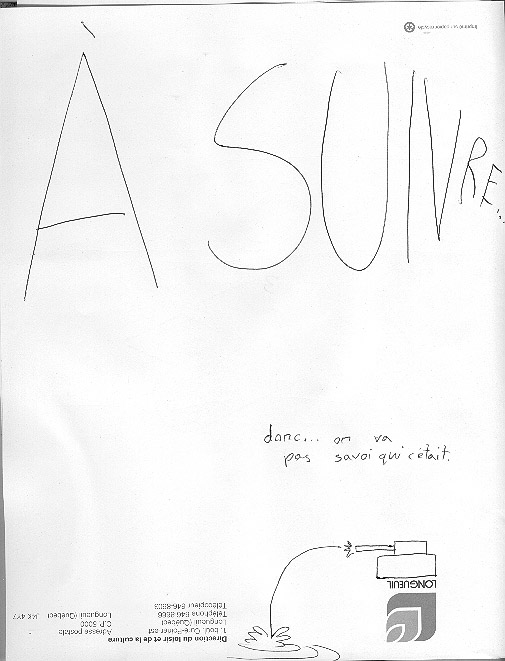 Imprimé sur papier recyclé
À SUIVRE...
donc... on va
pas savoi qui c'était.
LONGUEUIL
Direction du loisir et de la culture
1, boul. Curé-Poirier est
Longueuil (Québec)
Adresse postale
C.P. 5000
Longueuil (Québec) J4K 4Y7